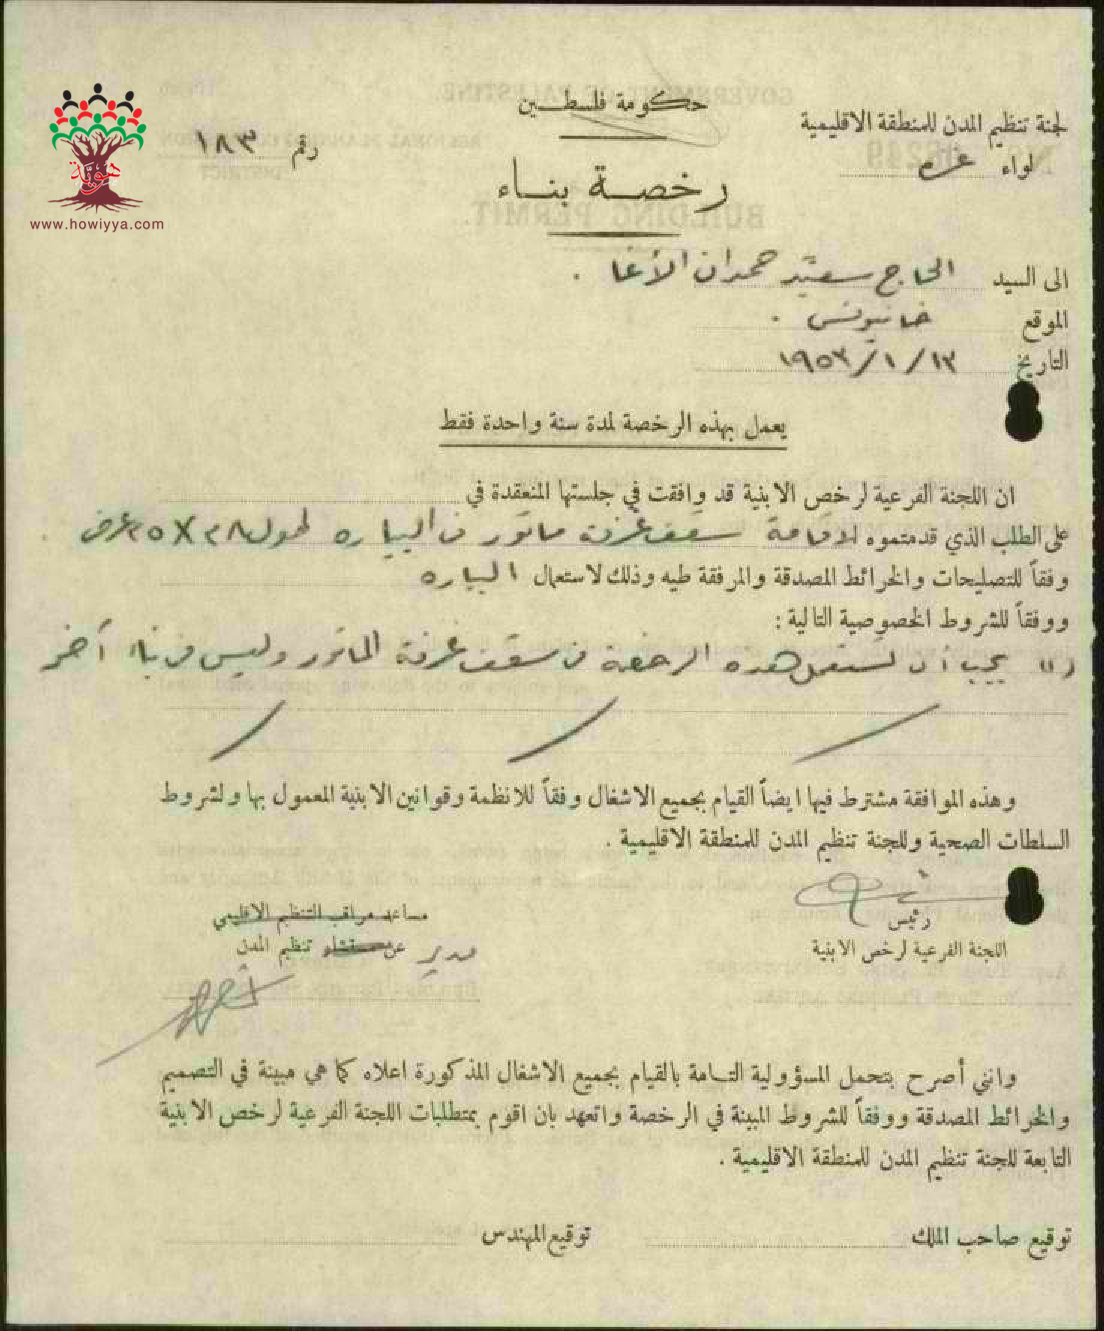 حكومة فلسطين
لجنة تنظيم المدن للمنطقة الاقليمية
لواء غزه
رقم ١٨٣
هوية
www.howiyya.com
رخصة بناء
الى السيد الحاج سعيد حمدان الأغا .
الموقع خانيونس .
التاريخ ١٣ / ١ / ١٩٥٣
يعمل بهذه الرخصة لمدة سنة واحدة فقط
ان اللجنة الفرعية لرخص الابنية قد وافقت في جلستها المنعقدة في
على الطلب الذي قدمتموه لاقامة سقف غرفة ماتور في البياره طول عرض
وفقاً للتصليحات والخرائط المصدقة والمرفقة طيه وذلك لاستعمال البياره
ووفقاً للشروط الخصوصية التالية :
(١) يجب أن تستعمل هذه الرخصة في سقف غرفة الماتور وليس في بناء آخر
وهذه الموافقة مشترط فيها ايضاً القيام بجميع الاشغال وفقاً للانظمة وقوانين الابنية المعمول بها ولشروط
السلطات الصحية وللجنة تنظيم المدن للمنطقة الاقليمية .
رئيس
اللجنة الفرعية لرخص الابنية
مساعد مراقب التنظيم الاقليمي
مدير عن مستشار تنظيم المدن
وانني أصرح بتحمل المسؤولية التامة بالقيام بجميع الاشغال المذكورة اعلاه كما هي مبينة في التصميم
والخرائط المصدقة ووفقاً للشروط المبينة في الرخصة واتعهد بان اقوم بمتطلبات اللجنة الفرعية لرخص الابنية
التابعة للجنة تنظيم المدن للمنطقة الاقليمية .
توقيع صاحب الملك
توقيع المهندس